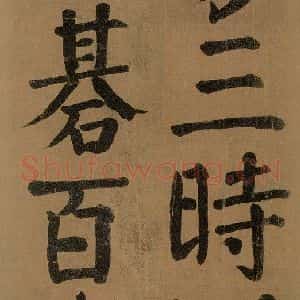 三時
碁百
Shufawang.CN